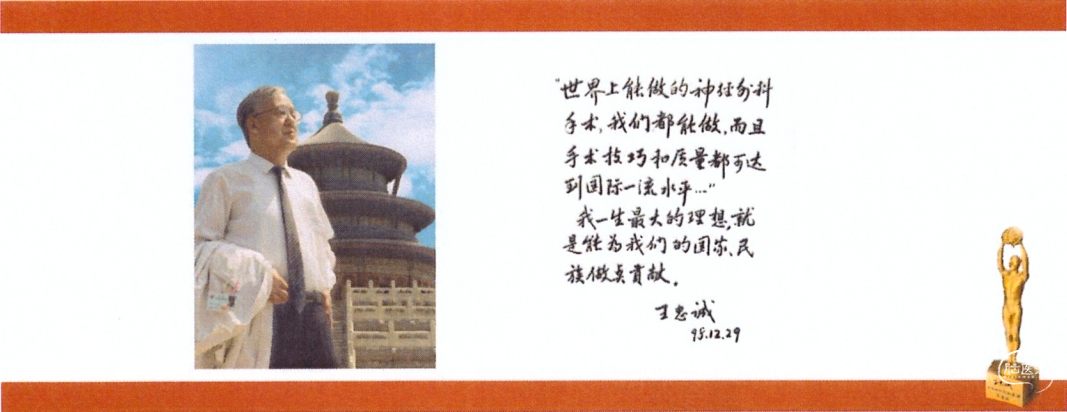 “世界上能做的神经外科
手术,我们都能做,而且
手术技巧和质量都可达
到国际一流水平...”
我一生最大的理想,就
是能为我们的国家、民
族做点贡献。
王忠诚
98.12.29